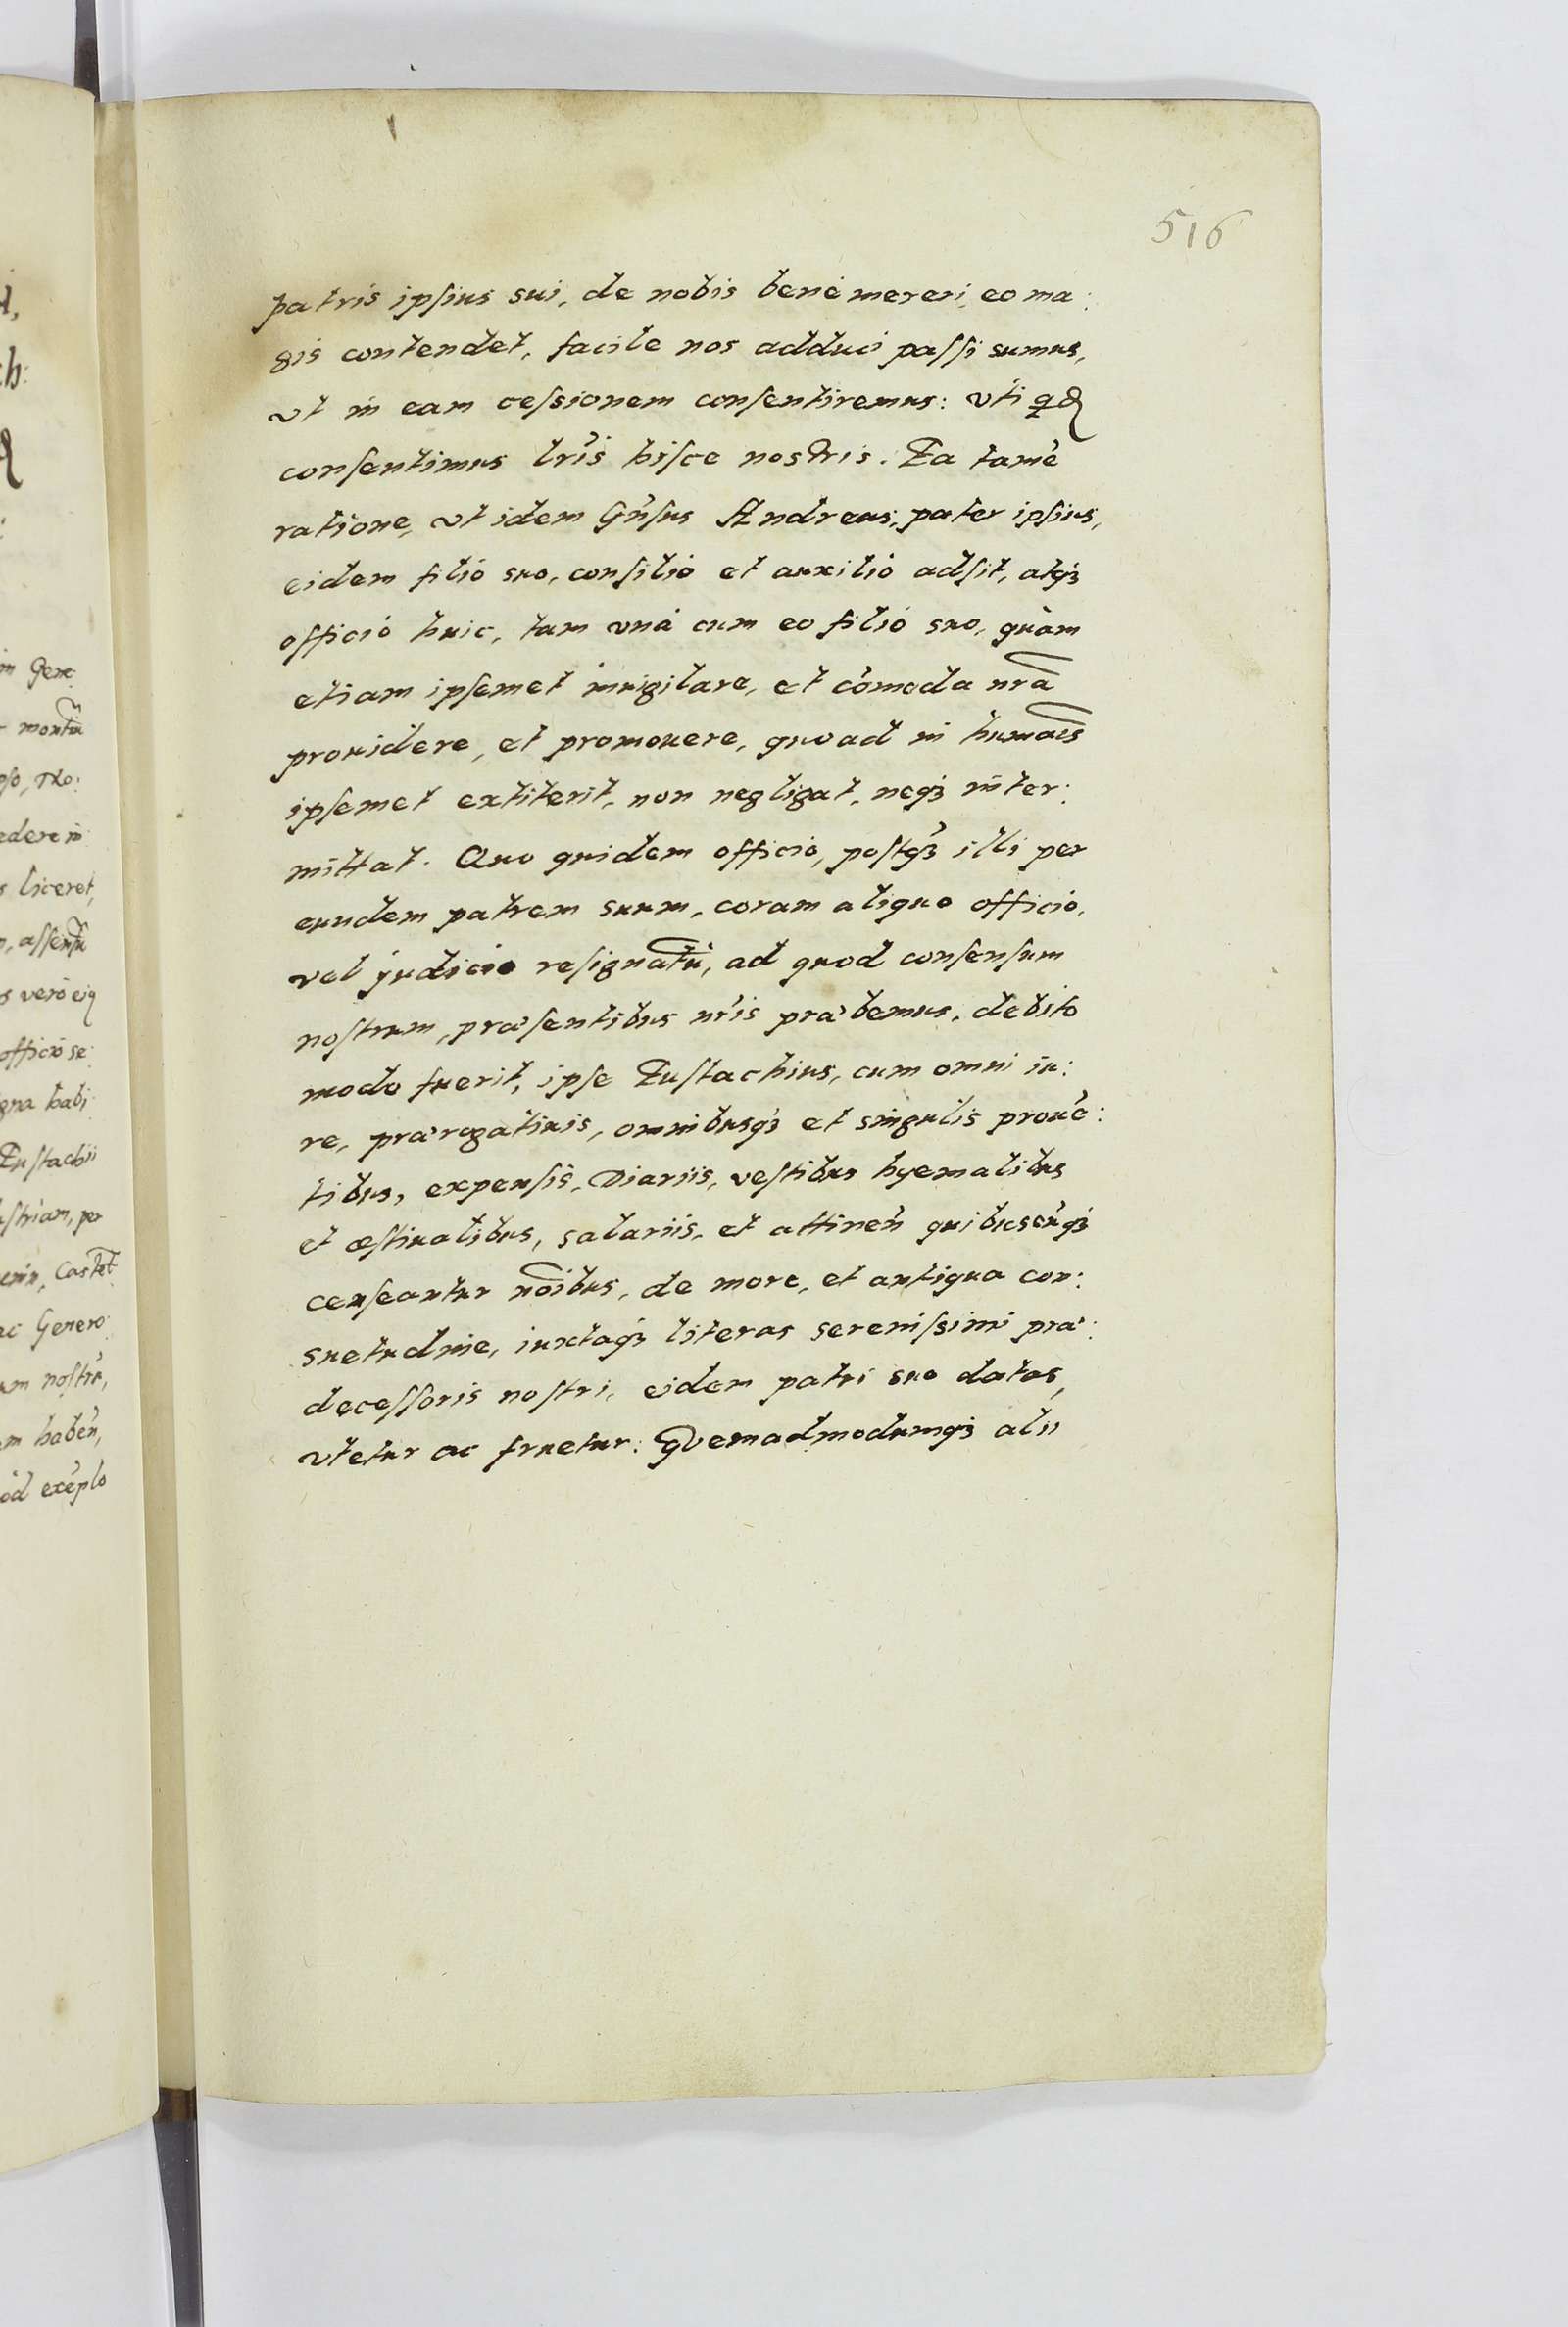 516
patris ipsius sui, de nobis benè mereri, eo ma:
gis contendet, facile nos adduci passi sumus,
vt in eam cessionem consentiremus: vti qd
consentimus lr̃is hisce nostris. Ea tamẽ
ratione, vt idem Gñsus Andreas, pater ipsius,
eidem filio suo, consilio et auxilio adsit, atqꝫ
officio huic, tam vnà cum eo filio suo, quàm
etiam ipsemet inuigilare, et cõmoda nrã
prouidere, et promouere, quoad in humãis
ipsemet extiterit, non negligat, neqꝫ inter:
mittat. Quo quidem officio, postqꝫ illi per
eundem patrem suum, coram aliquo officio,
vel judicio resignatũ, ad quod consensum
nostrum, præsentibus nr̃is præbemus, debito
modo fuerit, ipse Eustachius, cum omni iu:
re, prærogatiuis, omnibusqꝫ et singulis prouẽ:
tibus, expensis, Diariis, vestibus hyemalibus
et æstiualibus, salariis, et attineñ quibuscũqꝫ
censeantur nõibus, de more, et antiqua con:
suetudine, iuxtaqꝫ literas serenissimi præ:
decessoris nostri, eidem patri suo datas,
vtetur ac fruetur: Quemadmodumqꝫ alii
in Gene
liceret,
officio se:
Eustachii
ac Genero:
um nostrũ,
exẽplo